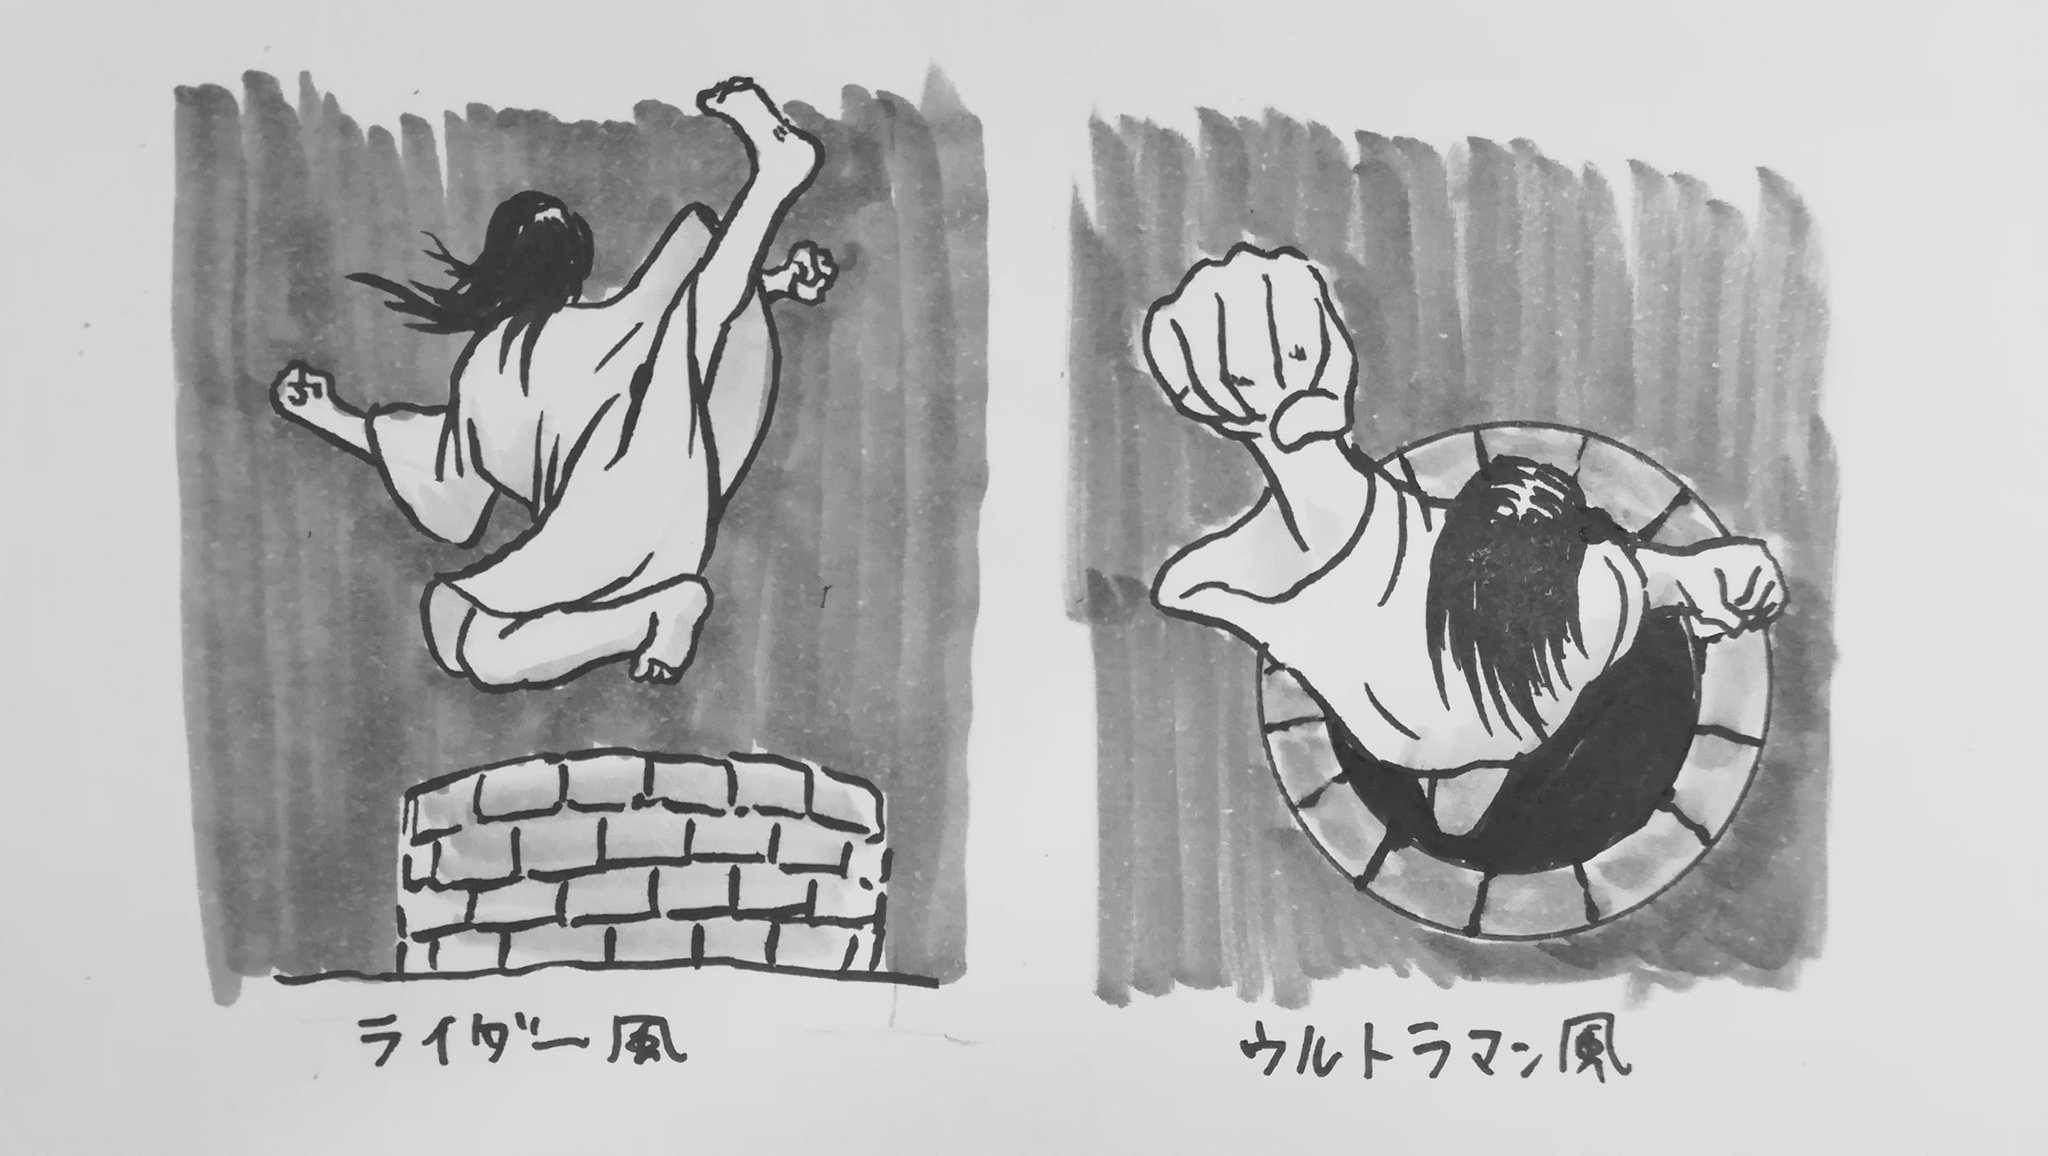 ライダー風
ウルトラマン風